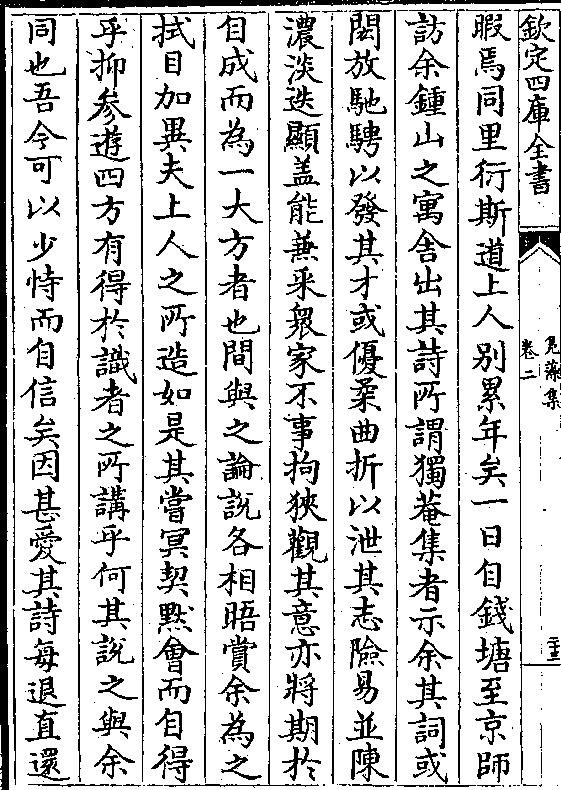 欽定四庫全書
鳬藻集
卷二
二十三
暇焉同里衍斯道上人别累年矣一日自錢塘至京師
訪余鍾山之寓舍出其詩所謂獨菴集者示余其詞或
閎放馳騁以發其才或優柔曲折以泄其志險易並陳
濃淡迭顯盖能兼采衆家不事拘狹觀其意亦將期於
自成而為一大方者也間與之論說各相晤賞余為之
拭目加異夫上人之所造如是其嘗冥契黙會而自得
乎抑參遊四方有得於識者之所講乎何其說之與余
同也吾今可以少恃而自信矣因甚愛其詩每退直還